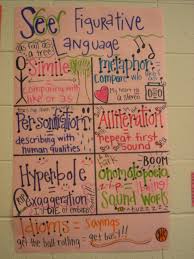 See Figurative
as tall as a tree
Language
Simile
comparing with like or as
metaphor
Compare w/o
My heart is a stereo
Personification
describing with human qualities
Alliteration
repeat first sound
Hyperbole
Exaggeration
BOOM
onomatopoeia
Sound Words
buzzzz
Idioms = Sayings
get the ball rolling